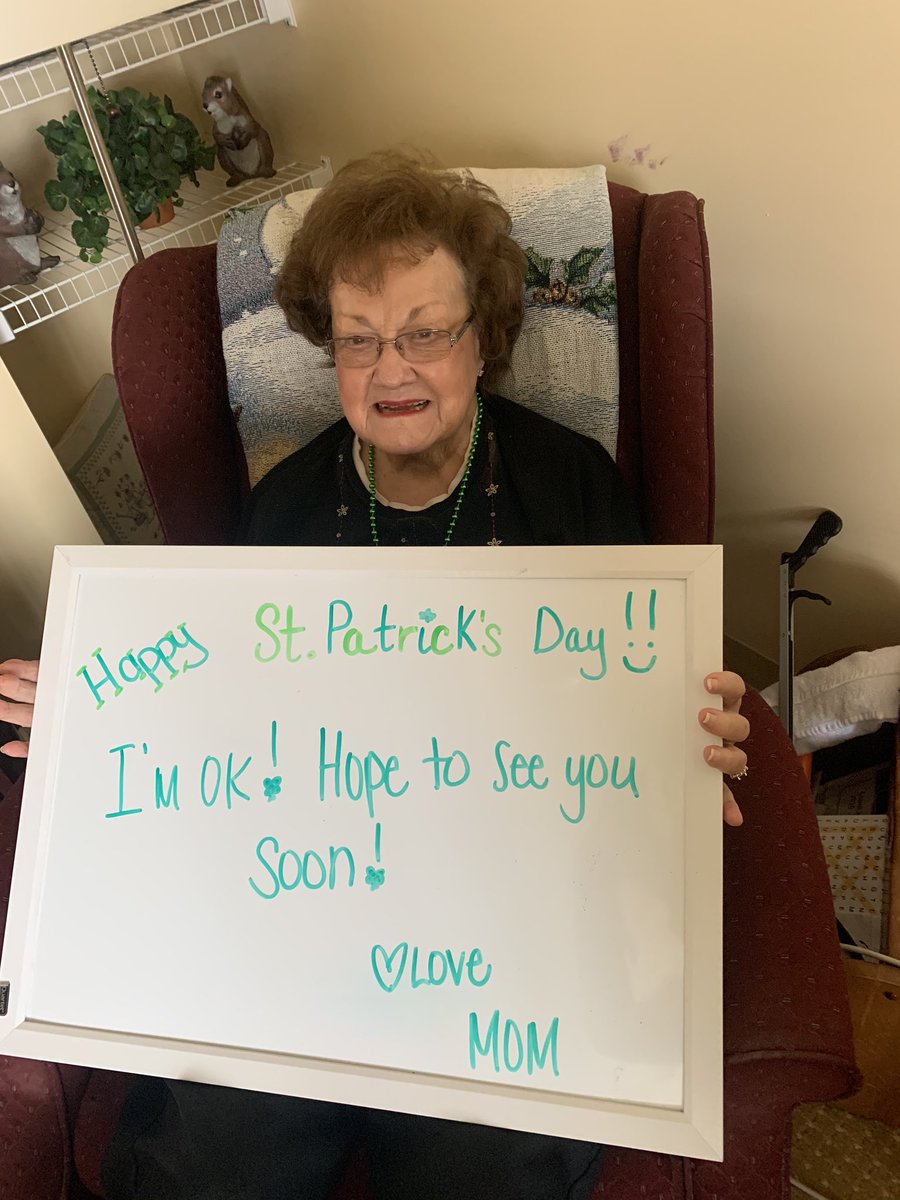 Happy St. Patrick's Day!!
I'm OK! Hope to see you
Soon!
♡Love
MOM